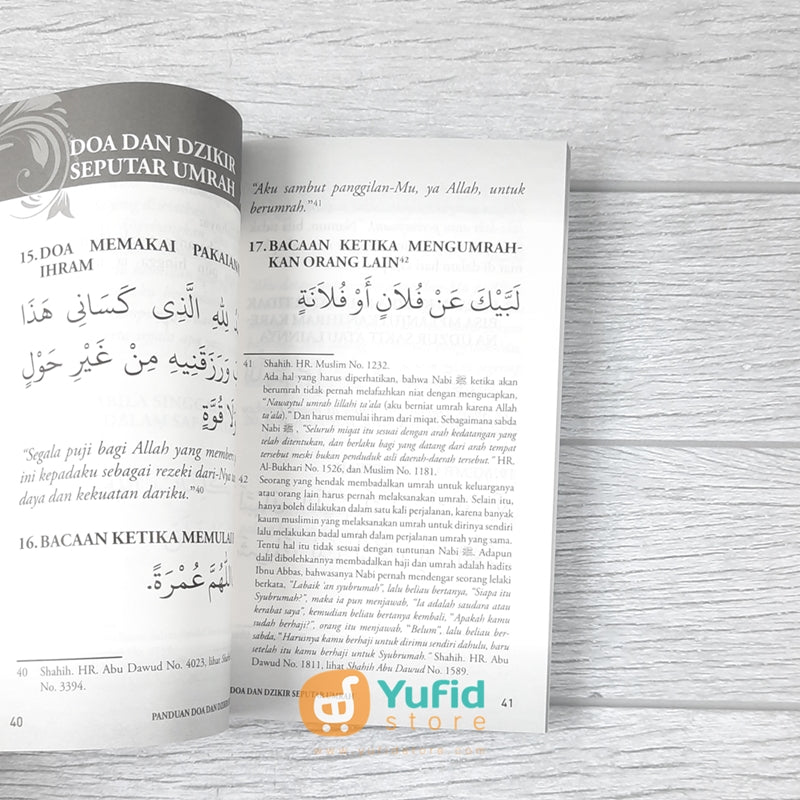 DOA DAN DZIKIR
SEPUTAR UMRAH
15. DOA MEMAKAI PAKAIAN
IHRAM
لِلَّهِ الَّذِي كَسَانِي هَذَا
وَرَزَقَنِيهِ مِنْ غَيْرِ حَوْلٍ
وَلَا قُوَّةٍ
“Segala puji bagi Allah yang member
ini kepadaku sebagai rezeki dari-Nya
daya dan kekuatan dariku.”40
16. BACAAN KETIKA MEMULAI
اللَّهُمَّ عُمْرَةً.
40 Shahih. HR. Abu Dawud No. 4023, lihat
No. 3394.
40
PANDUAN DOA DAN DZIKIR
“Aku sambut panggilan-Mu, ya Allah, untuk
berumrah.”41
17. BACAAN KETIKA MENGUMRAH-
KAN ORANG LAIN42
لَبَّيْكَ عَنْ فُلَانٍ أَوْ فُلَانَةٍ
41 Shahih. HR. Muslim No. 1232.
Ada hal yang harus diperhatikan, bahwa Nabi ﷺ ketika akan
berumrah tidak pernah melafazhkan niat dengan mengucapkan,
“Nawaytul umrah lillahi ta’ala (aku berniat umrah karena Allah
ta’ala).” Dan harus memulai ihram dari miqat. Sebagaimana sabda
Nabi ﷺ, “Seluruh miqat itu sesuai dengan arah kedatangan yang
telah ditentukan, dan berlaku bagi yang datang dari arah tempat
tersebut meski bukan penduduk asli daerah-daerah tersebut.” HR.
Al-Bukhari No. 1526, dan Muslim No. 1181.
42 Seorang yang hendak membadalkan umrah untuk keluarganya
atau orang lain harus pernah melaksanakan umrah. Selain itu,
hanya boleh dilakukan dalam satu kali perjalanan, karena banyak
kaum muslimin yang melaksanakan umrah untuk dirinya sendiri
lalu melakukan badal umrah dalam perjalanan umrah yang sama.
Tentu hal itu tidak sesuai dengan tuntunan Nabi ﷺ. Adapun
dalil dibolehkannya membadalkan haji dan umrah adalah hadits
Ibnu Abbas, bahwasanya Nabi pernah mendengar seorang lelaki
berkata, “Labaik ‘an syubrumah”, lalu beliau bertanya, “Siapa itu
Syubrumah?”, maka ia pun menjawab, “Ia adalah saudara atau
kerabat saya”, kemudian beliau bertanya kembali, “Apakah kamu
sudah berhaji?”, orang itu menjawab, “Belum”, lalu beliau ber-
sabda, “Harusnya kamu berhaji untuk dirimu sendiri dahulu, baru
setelah itu kamu berhaji untuk Syubrumah.” Shahih. HR. Abu
Dawud No. 1811, lihat Shahih Abu Dawud No. 1589.
DOA DAN DZIKIR SEPUTAR UMRAH
41
Yufid
store
www.yufidstore.com